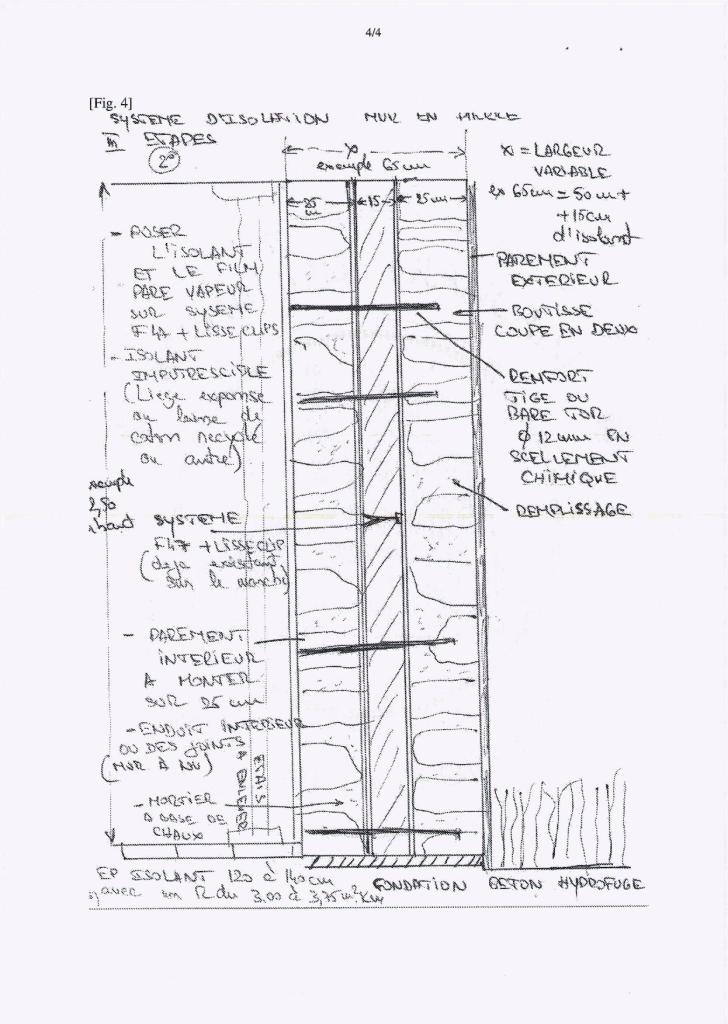 4/4
[Fig. 4]
SYSTEME D'ISOLATION MUR EN
III ETAPES
2°
X
exemple 65cm
X = LARGEUR
VARIABLE
ex 65cm = 50cm +
+15cm
d'isolant
25
cm
15
25cm
- POSER
L'ISOLANT
ET LE FILM
PARE VAPEUR
SUR SYSEME
F47 + LISSE CLIPS
- ISOLANT
IMPUTRESCIBLE
(Liege expansé
ou laine de
coton recyclé
ou autre)
exemple
2,50
haut
SYSTEME
F47 + LISSE CLIP
(deja existant
sur le marché)
- PAREMENT
INTERIEUR
A MONTER
SUR 25 cm
- ENDUIT INTERIEUR
OU DES JOINTS
(MUR A NU)
ETAIS
A ENLEVER
- MORTIER
A BASE DE
CHAUX
PAREMENT
EXTERIEUR
BOUTISSE
COUPE EN DEUX
RENFORT
TIGE OU
BARE TOR
φ 12mm EN
SCELLEMENT
CHIMIQUE
REMPLISSAGE
EP ISOLANT 120 à 140cm
avec un R du 3.00 à 3,75 m².K/w
FONDATION BETON HYDROFUGE